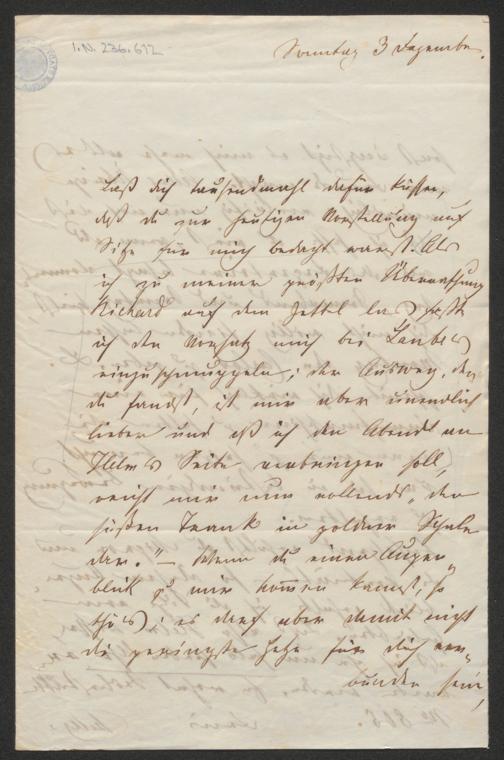 I.N. 236.612
Sonntag 3 Dezember.
Laß dich tausendmahl dafür küssen,
daß du zur heutigen Vorstellung auf
Sitze für mich bedacht warst. Als
ich zu meiner größten Überraschung
Richard auf dem Zettel las, faßte
ich den Vorsatz mich bei Laubes
einzuschmuggeln; der Ausweg, den
du fandst, ist mir aber unendlich
lieber und daß ich den Abend an
Seite verbringen soll,
reicht mir nun vollends „den
süßen Trank in goldner Schale
dar." – Wenn du einen Augen-
blick zu mir kommen kannst, so
thu's; es darf aber damit nicht
die geringste Hetze für dich ver-
bunden sein,